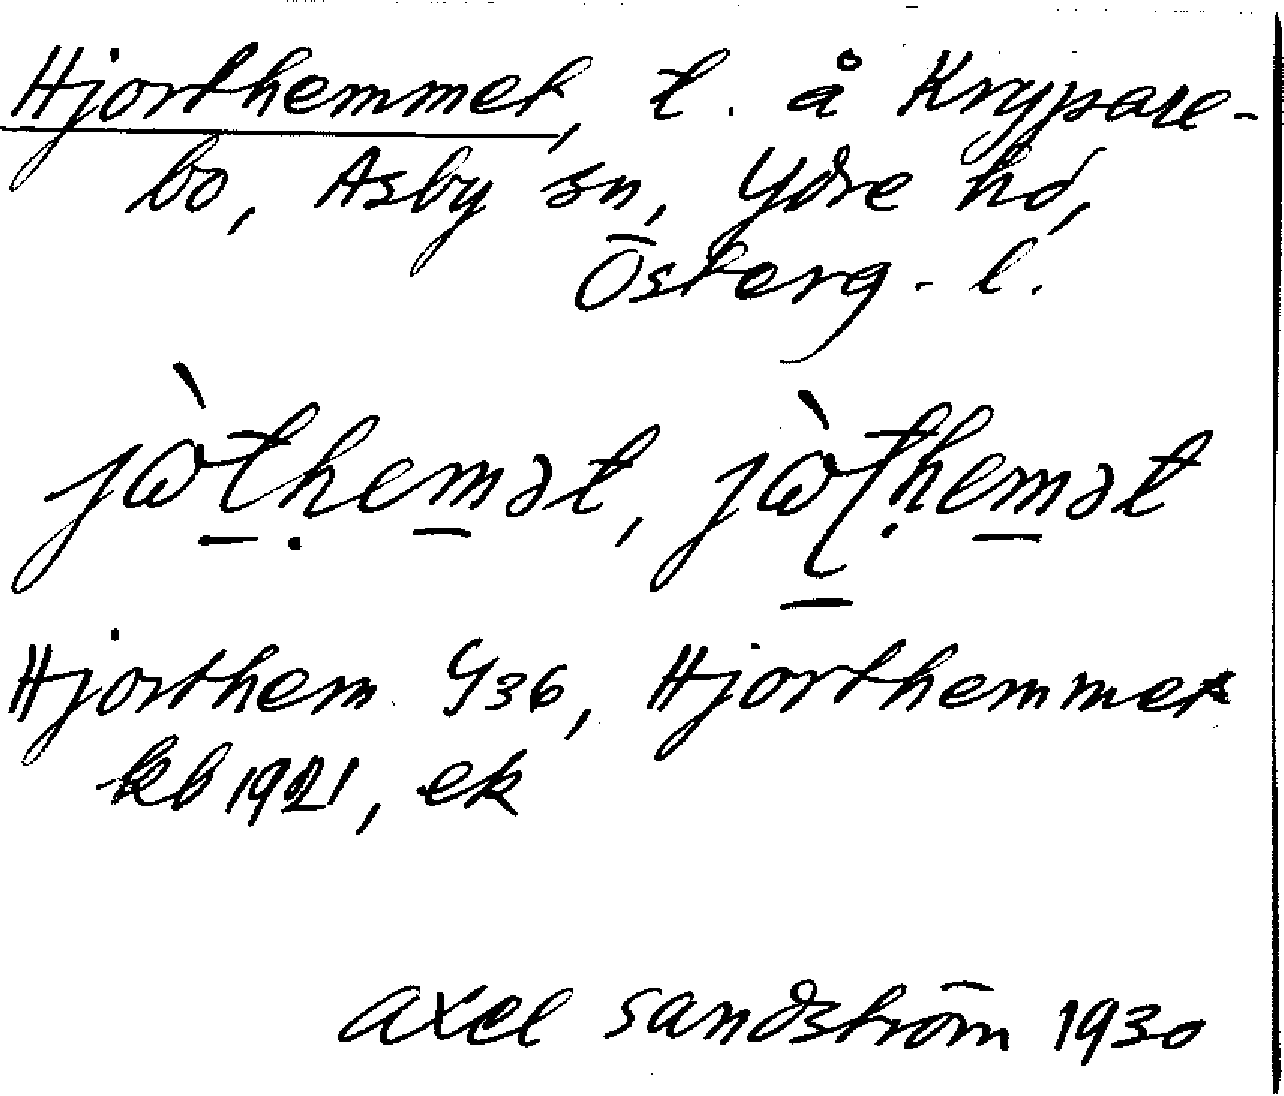 Hjorthemmet, t. å Krypare-
bo, Asby sn, Ydre hd,
Österg. l.
jὼt̠ḥem̠ət, jὼʈ̠ḥem̠ət
Hjorthem Y36, Hjorthemmet
kb 1921, ek
Axel Sandström 1930